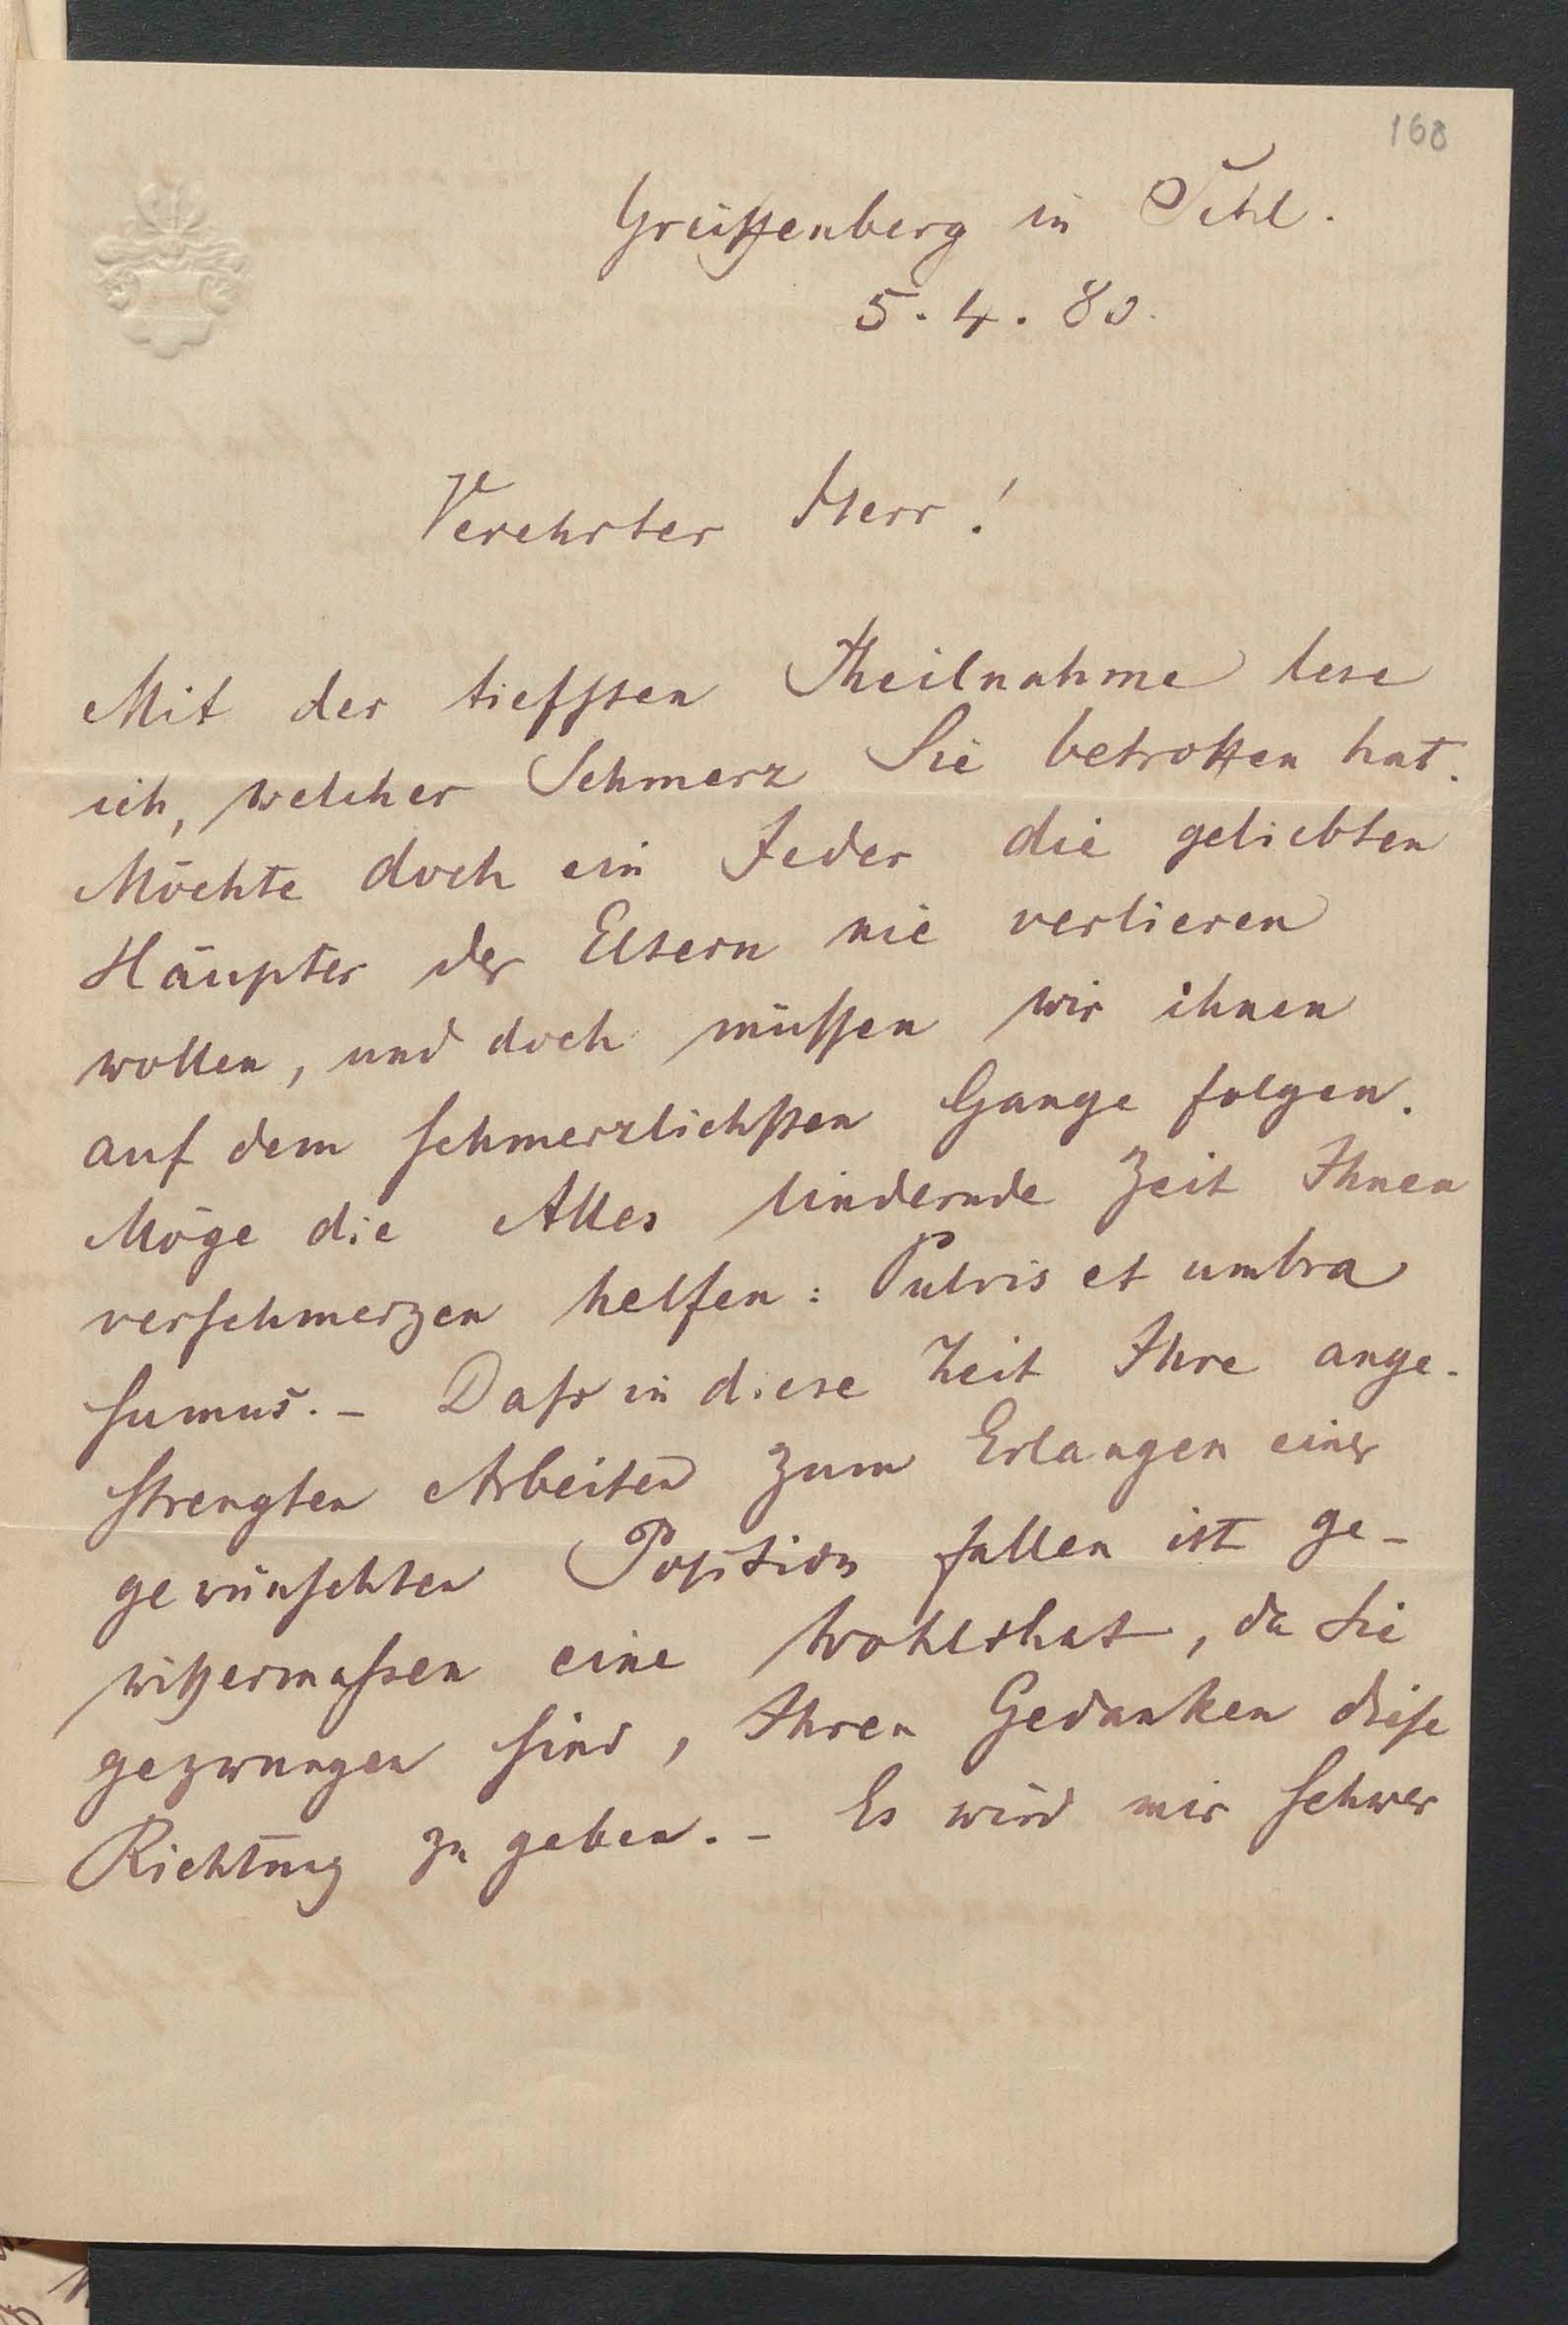 168
Greiffenberg in Schl.
5. 4. 80.
Verehrter Herr!
Mit der tiefsten Theilnahme lese
ich, welcher Schmerz Sie betroffen hat.
Möchte doch ein Jeder die geliebten
Häupter der Eltern nie verlieren
wollen, und doch müssen wir ihnen
auf dem schmerzlichsten Gange folgen.
Möge die Alles lindernde Zeit Ihnen
verschmerzen helfen: Pulvis et umbra
sumus. – Dass in diese Zeit Ihre ange-
strengten Arbeiten zum Erlangen einer
gewünschten Position fallen ist ge-
wissermassen eine Wohlthat, da Sie
gezwungen sind, Ihren Gedanken diese
Richtung zu geben. – Es wird mir schwer